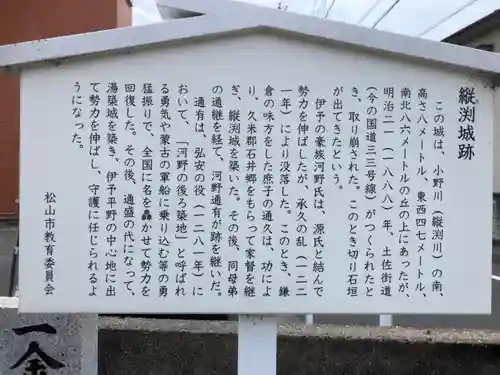 縦渕城跡
この城は、小野川（縦渕川）の南、
高さ八メートル、東西四七メートル、
南北八六メートルの丘の上にあったが、
明治二一（一八八八）年、土佐街道
（今の国道三三号線）がつくられたと
き、取り崩された。このとき切り石垣
が出てきたという。
伊予の豪族河野氏は、源氏と結んで
勢力を伸ばしたが、承久の乱（一二二
一年）により没落した。このとき、鎌
倉の味方をした庶子の通久は、功によ
り、久米郡石井郷をもらって家督を継
ぎ、縦渕城を築いた。その後、同母弟
の通継を経て、河野通有が跡を継いだ。
通有は、弘安の役（一二八一年）に
おいて、「河野の後ろ築地」と呼ばれ
る勇気や蒙古の軍船に乗り込む等の勇
猛振りで、全国に名を轟かせて勢力を
回復した。その後、通盛の代になって、
湯築城を築き、伊予平野の中心地に出
て勢力を伸ばし、守護に任じられるよ
うになった。
松山市教育委員会
一金